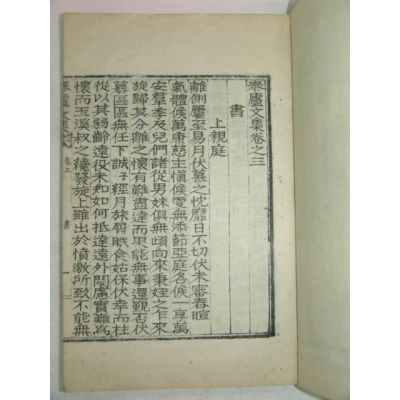 泰廬文集卷之三
書
上親庭
離側屢至易月伏慕之忱靡日不切伏未審春暄
氣體候萬康慈主愼候更無添節亞庭各候一享萬
安羣季及兒們諸從男妹俱無頉向來秉姪之乍來
旋歸其分離之懷有難盡達而果能無事還覲否伏
慕區區無任下誠子經月旅食姑保伏幸而柱
從以其弱齡遠役未知如何抵達遠外悶慮實難爲
懷而玉溪叔之旋上雖出於憤激所致不能無
文集 卷三 書 一